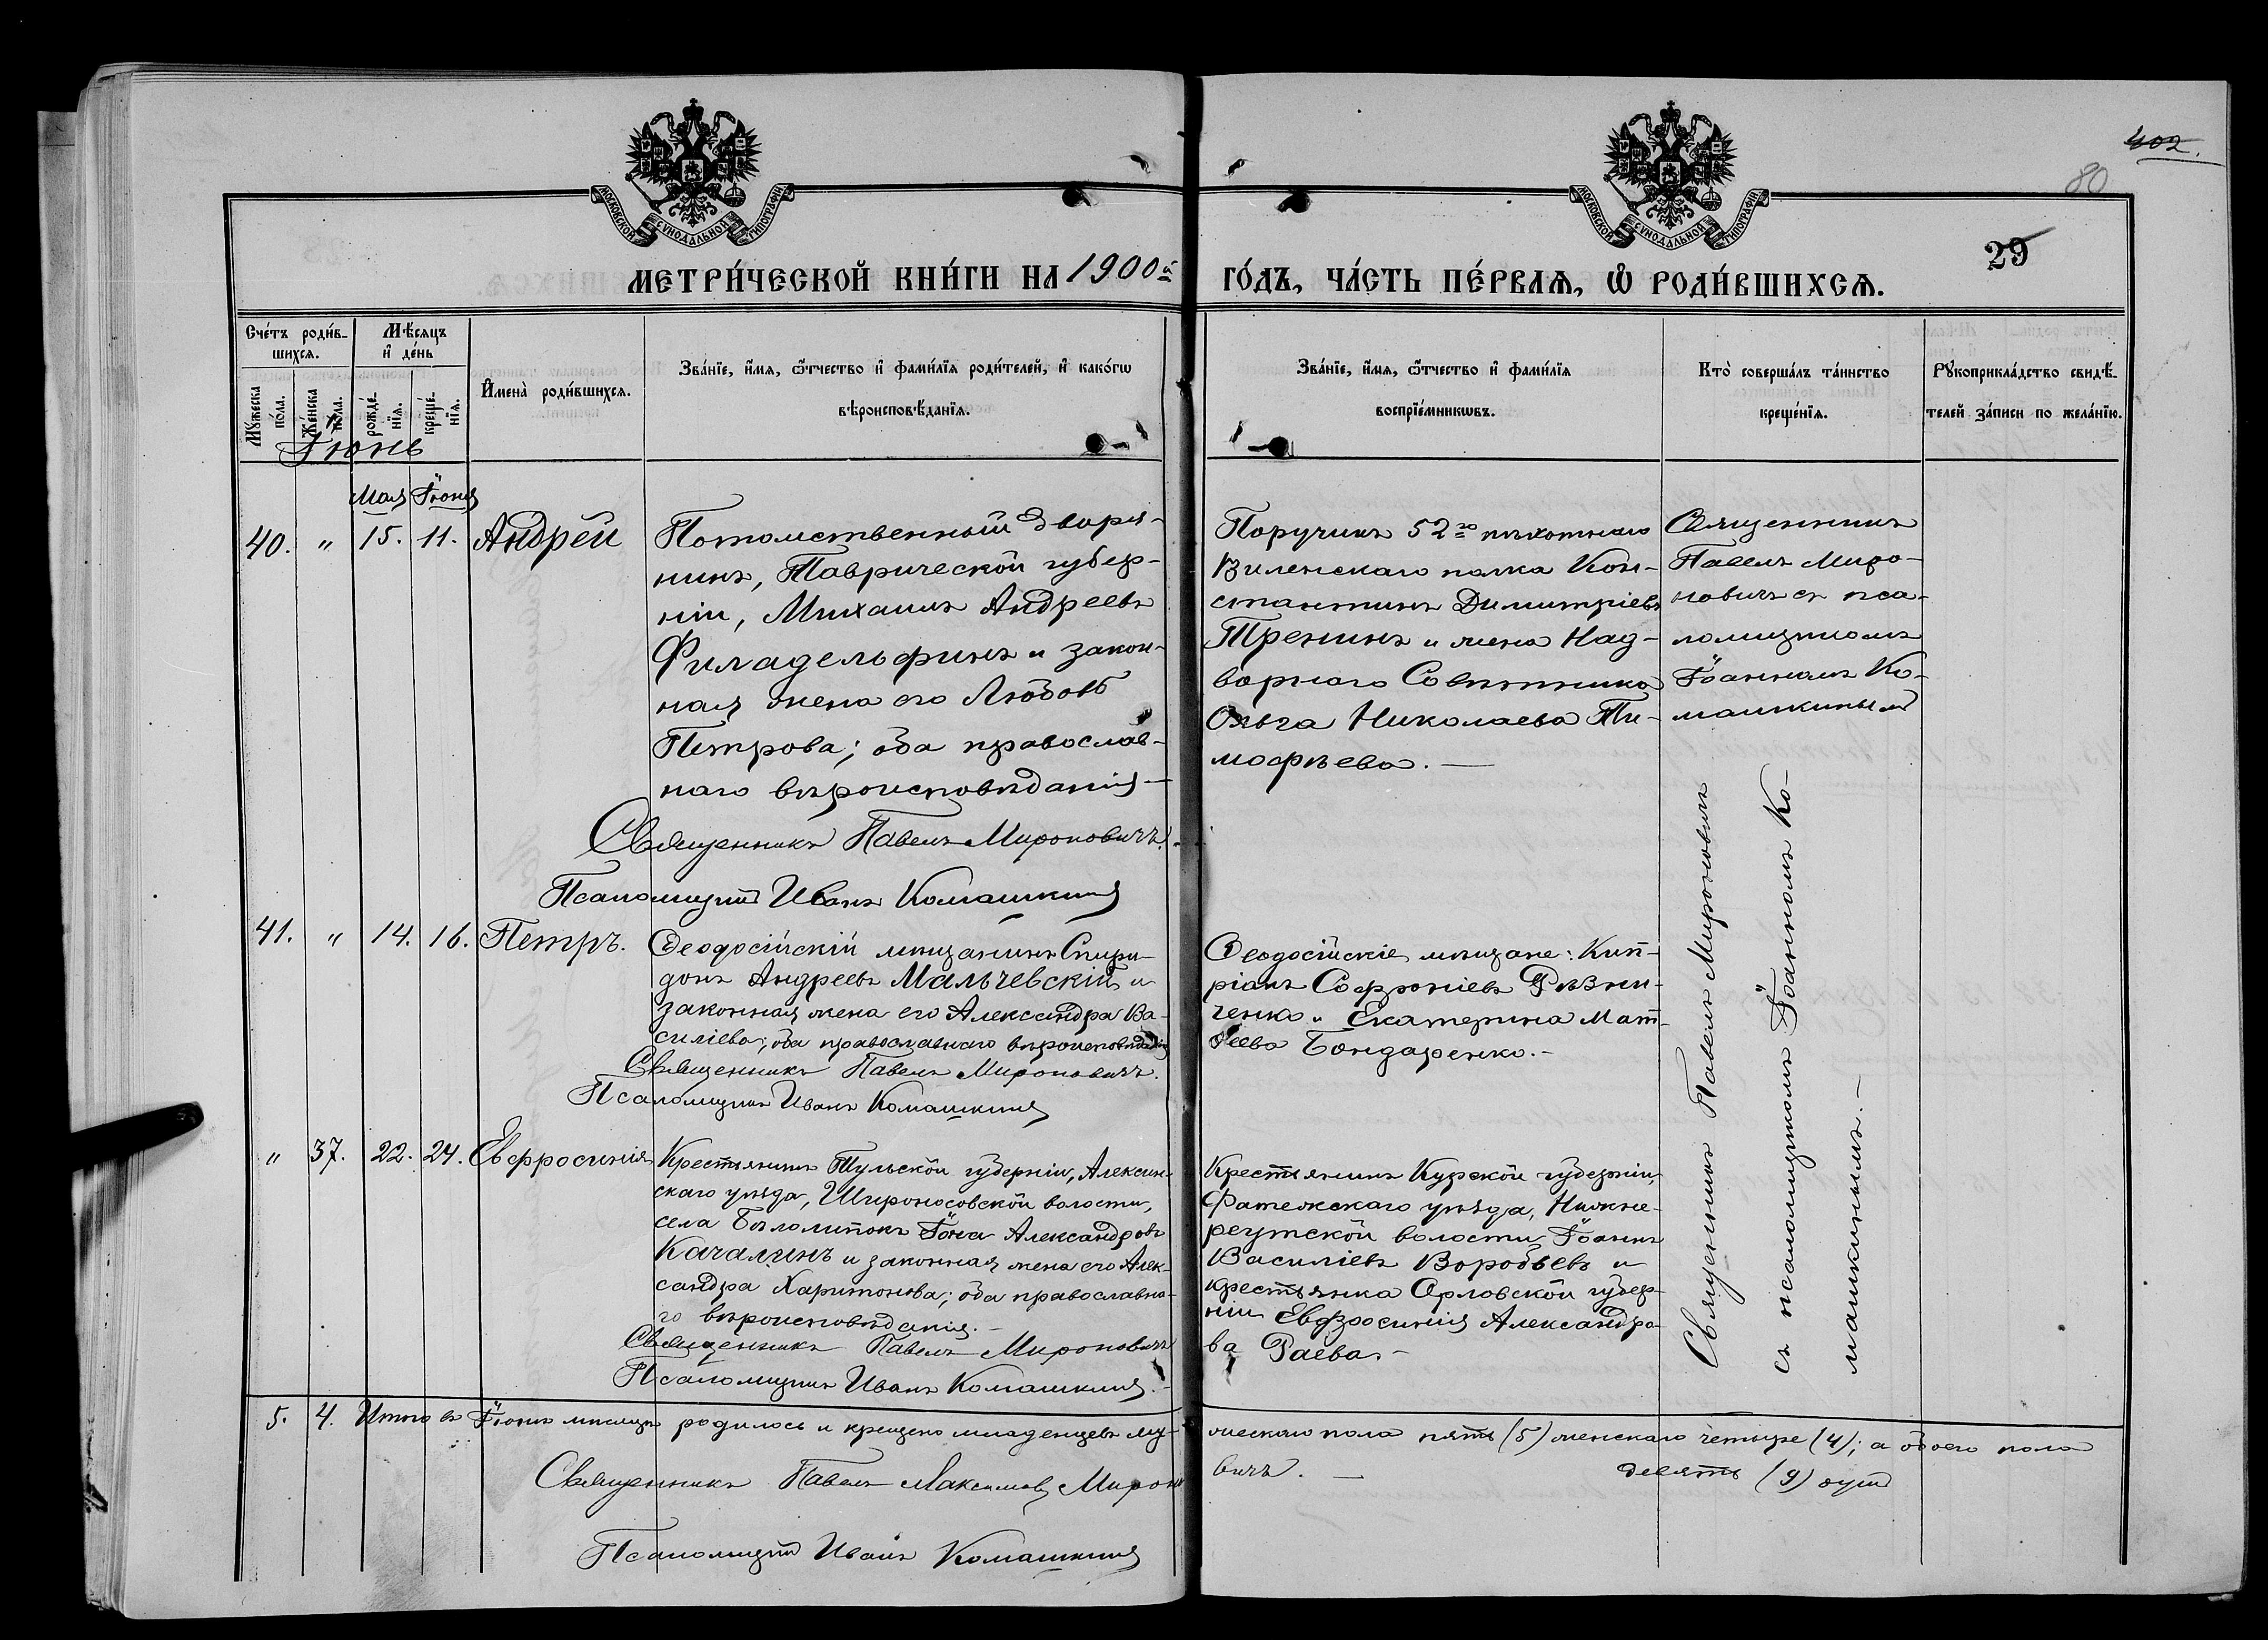 402.
80
29
МОСКОВСКОЙ СУНОДАЛЬНОЙ ТИПОГРАФІИ
МОСКОВСКОЙ СУНОДАЛЬНОЙ ТИПОГРАФІИ
МЕТРИ́ЧЕСКОЙ КНИ́ГИ НА 1900й ГО́ДЪ, ЧА́СТЬ ПЕ́РВАѦ, Ѡ҆ РОДИ́ВШИХСѦ.
Сче́тъ роди́в-
шихсѧ.
Мꙋ́жеска
по́ла.
Же́нска
по́ла.
Мѣ́сѧцъ
и҆ де́нь
рожде́-
нїѧ.
креще́-
нїѧ.
И҆мена̀ роди́вшихсѧ.
Зва́нїе, и҆́мѧ, ѻ҆́тчество и҆ фами́лїѧ роди́телей, и҆ како́гѡ
вѣроисповѣ́данїѧ.
Зва́нїе, и҆́мѧ, ѻ҆́тчество и҆ фами́лїѧ
воспрїе́мникѡвъ.
Кто̀ соверша́лъ та́инство
креще́нїѧ.
Рꙋкоприкла́дство свидѣ́-
телей за́писи по жела́нїю.
Іюнь
Мая Іюня
40. " 15. 11. Андрей
Потомственный Дворя-
нинъ, Таврической губер-
ніи, Михаилъ Андреевъ
Филадельфинъ и закон-
ная жена его Любовь
Петрова; оба православ-
наго вѣроисповѣданія —
Священникъ Павелъ Мироновичъ.
Псаломщикъ Иванъ Комашкинъ
Поручикъ 52го пѣхотнаго
Виленскаго полка Кон-
стантинъ Димитріевъ
Тренинъ и жена Над-
ворнаго Совѣтника
Ольга Николаева Ти-
мофѣева. —
Священникъ
Павелъ Миро-
новичъ съ пса-
ломщикомъ
Іоанномъ Ко-
машкинымъ
41. " 14. 16. Петръ.
Ѳеодосійскій мѣщанинъ Спири-
донъ Андреевъ Мальчевскій и
законная жена его Александра Ва-
силіева; оба православнаго вѣроисповѣданія
Священникъ Павелъ Мироновичъ.
Псаломщикъ Иванъ Комашкинъ
Ѳеодосійскіе мѣщане: Кип-
ріанъ Софроніевъ Рѣзни-
ченко и Екатерина Мат-
ѳеева Бондаренко. —
Священникъ Павелъ Мироновичъ
съ псаломщикомъ Іоанномъ Ко-
машкинымъ. —
" 37. 22. 24. Евфросинія
Крестьянинъ Тульской губерніи, Алексин-
скаго уѣзда, Широносовской волости,
села Бѣлолипокъ Іона Александровъ
Качалинъ и законная жена его Алек-
сандра Харитонова; оба православна-
го вѣроисповѣданія. —
Священникъ Павелъ Мироновичъ
Псаломщикъ Иванъ Комашкинъ. —
Крестьянинъ Курской губерніи,
Фатежскаго уѣзда, Нижне-
реутской волости Іоаннъ
Василіевъ Воробьевъ и
крестьянка Орловской губер-
ніи Евфросинія Александро-
ва Раева. —
5. 4. Итого въ Іюнѣ мѣсяцѣ родилось и крещено младенцевъ му-
жескаго пола пять (5) женскаго четыре (4); а обоего пола
девять (9) душъ
Священникъ Павелъ Максимовъ Мироно
вичъ. —
Псаломщикъ Иванъ Комашкинъ